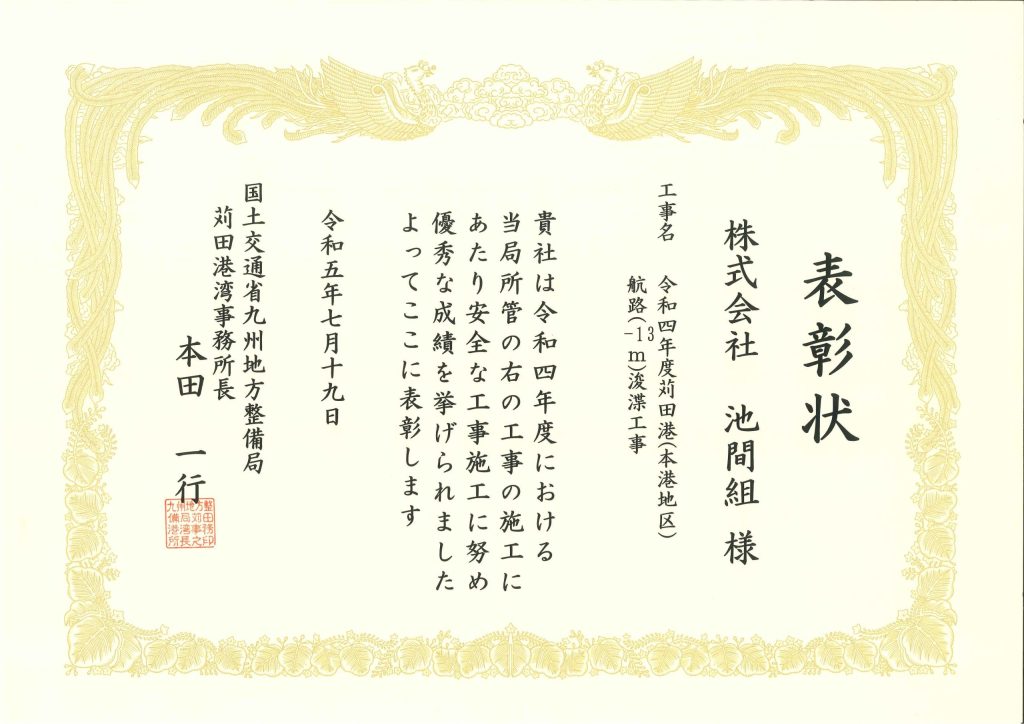 表彰状
株式会社 池間組 様
工事名 令和四年度苅田港(本港地区)
航路(-13m)浚渫工事
貴社は令和四年度における
当局所管の右の工事の施工に
あたり安全な工事施工に努め
優秀な成績を挙げられました
よってここに表彰します
令和五年七月十九日
国土交通省九州地方整備局
苅田港湾事務所長
本田 一行